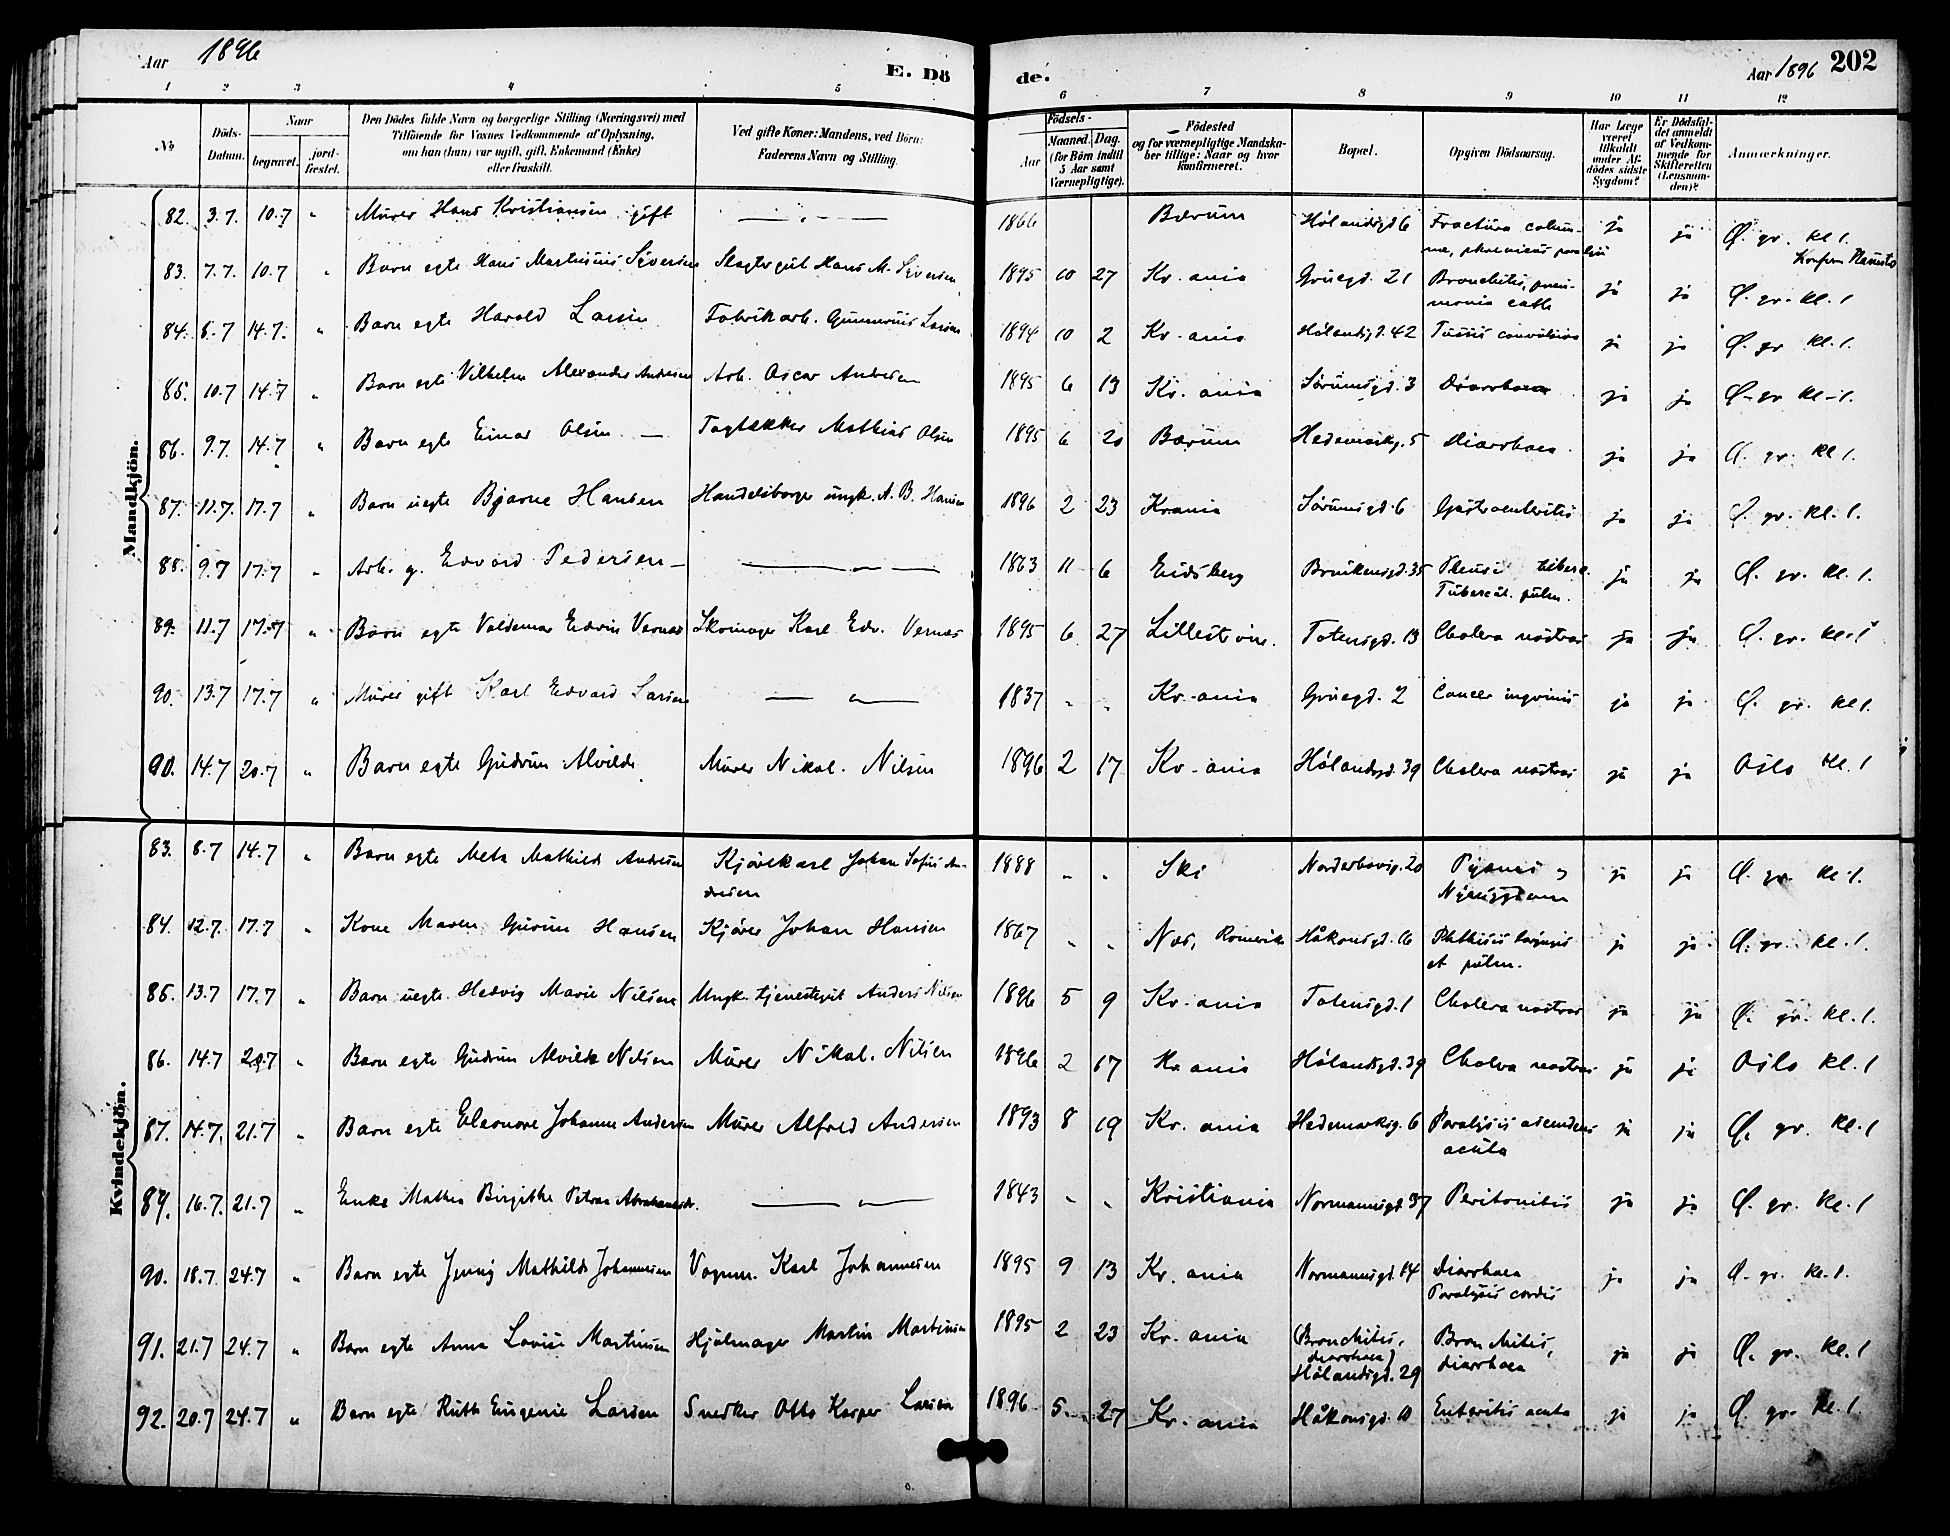 Aar 1896
E. Dö
de.
Aar 1896 202
1 2 3 4 5 6 7 8 9 10 11 12
No
Döds-
Datum.
Naar
begravet.
jord-
fæstet.
Den Dödes fulde Navn og borgerlige Stilling (Næringsvei) med
Tilföiende for Voxnes Vedkommende af Oplysning,
om han (hun) var ugift, gift, Enkemand (Enke)
eller fraskilt.
Ved gifte Koner: Mandens, ved Börn:
Faderens Navn og Stilling.
Födsels-
Aar
Maaned.
Dag.
(for Börn indtil
5 Aar samt
Værnepligtige).
Födested
og for værnepligtige Mandska-
ber tillige: Naar og hvor
konfirmeret.
Bopæl.
Opgiven Dödsaarsag.
Har Læge
været
tilkaldt
under Af-
dödes sidste
Sygdom?
Er Dödsfal-
det anmeldt
af Vedkom-
mende for
Skifteretten
(Lensman-
den)?
Anmærkninger.
Mandkjön.
82. 3.7. 10.7 " Murer Hans Kristiansen gift — " — 1866 Bærum Hølandsgd 6 Fractura colum- ja ja Ø. gr. kl 1.
næ, phrenicus paralysi
83. 7.7. 10.7 " Barn egte Hans Martinius Syversen Slagtergut Hans M. Syversen 1895 10 27 Kr. ania Gruegd. 21 Bronchitis, pneu- ja ja Ø. gr. kl. 1
monia cath
84. 8.7 14.7. " Barn egte Harald Larsen Fabrikarb. Larsen 1894 10 2 Kr. ania Hølandsgd. 42 Tussis convulsiva ja ja Ø. gr kl. 1.
85. 10.7 14.7 " Barn egte Vilhelm Alexander Andersen Arb. Oscar Andersen 1895 6 13 Kr. ania Sørumsgd. 3 Diarrhoea ja ja Ø. gr kl. 1.
86. 9.7. 14.7 " Barn egte Einar Olsen — Tagtækker Mathias Olsen 1895 6 20 Bærum Hedemarkg. 5 Diarrhoea ja ja Ø. gr. kl 1.
87. 11.7. 17.7 " Barn uegte Bjarne Hansen Handelsborger ungk. A. B. Hansen 1896 2 23 Krania Sørumsgd. 6 Gastroenteritis ja ja Ø. gr. kl. 1.
88. 9.7 17.7 " Arb. g. Edvard Pedersen — — " — 1863 11 6 Eidsberg 35 ja ja Ø. gr. kl. 1.
Tubercul. pulm.
89. 11.7 17.7 " Barn egte Valdemar Edvin Vernes Skomager Karl Edv. Vernes 1895 6 27 Lillestrøm. Totensgd. 13 Cholera nostras ja ja Ø. gr. kl. 1
90. 13.7 17.7 " Murer gift Karl Edvard Larsen — " — 1837 " " Kr. ania Gruegd. 2 Cancer ja ja Ø. gr. kl 1.
90. 14.7 20.7 " Barn egte Gudrun Alvilde Murer Nikol. Nilsen 1896 2 17 Kr. ania Hølandsgd. 39 Cholera nostras ja ja Oslo kl. 1
Kvindekjön.
83. 8.7 14.7 " Barn egte Meta Mathilde Andresen Kjørekarl Johan Sofus An- 1888 " " Ski Norderhovg. 20 ja ja Ø. gr. kl. 1.
dresen
84. 12.7. 17.7 " Kone Maren Hansen Kjører Johan Hansen 1867 " " Nes, Romerike Håkonsgd. 16 Phthisis laryngis ja ja Ø. gr. kl. 1.
et pulm.
85. 13.7 17.7 " Barn uegte Hedvig Marie Nilsen Ungk. tjenestegut Anders Nilsen 1896 5 9 Kr. ania Totensgd. 1 Cholera nostras ja ja Ø. gr. kl. 1.
86. 14.7 20.7 " Barn egte Gudrun Alvilde Nilsen Murer Nikol. Nilsen 1896 2 17 Kr ania Hølandsgd. 39 Cholera nostras ja ja Oslo kl. 1
87. 14.7. 21.7 " Barn egte Eleonore Johanne Andersen Murer Alfred Andersen 1893 8 19 Kr. ania Hedemarksg. 6 Paralysis ascendens ja ja Ø. gr. kl. 1
acuta
89. 16.7. 21.7 " Enke Mathea Birgithe Petra — " — 1843 " " Kristiania Normannsgd. 37 Peritonitis ja ja Ø. gr. kl. 1
90. 18.7. 24.7 " Barn egte Jenny Mathilde Johannesen Vognm. Karl Johannesen 1895 9 13 Kr. ania Normannsgd. 14 Diarrhoea ja ja Ø. gr. kl. 1.
Paralysis cordis
91. 21.7 24.7 " Barn egte Anna Lovise Martinsen Hjulmager Martin Martinsen 1895 2 23 Kr. ania (Bronchitis, Bronchitis, ja ja Ø. gr. kl. 1
diarrhoea) diarrhoea
Hølandsgd. 29
92. 20.7 24.7 " Barn egte Ruth Eugenie Larsen Snedker Otto Kasper Larsen 1896 5 27 Kr. ania Håkonsgd. 10 Enteritis acuta ja ja Ø. gr. kl. 1